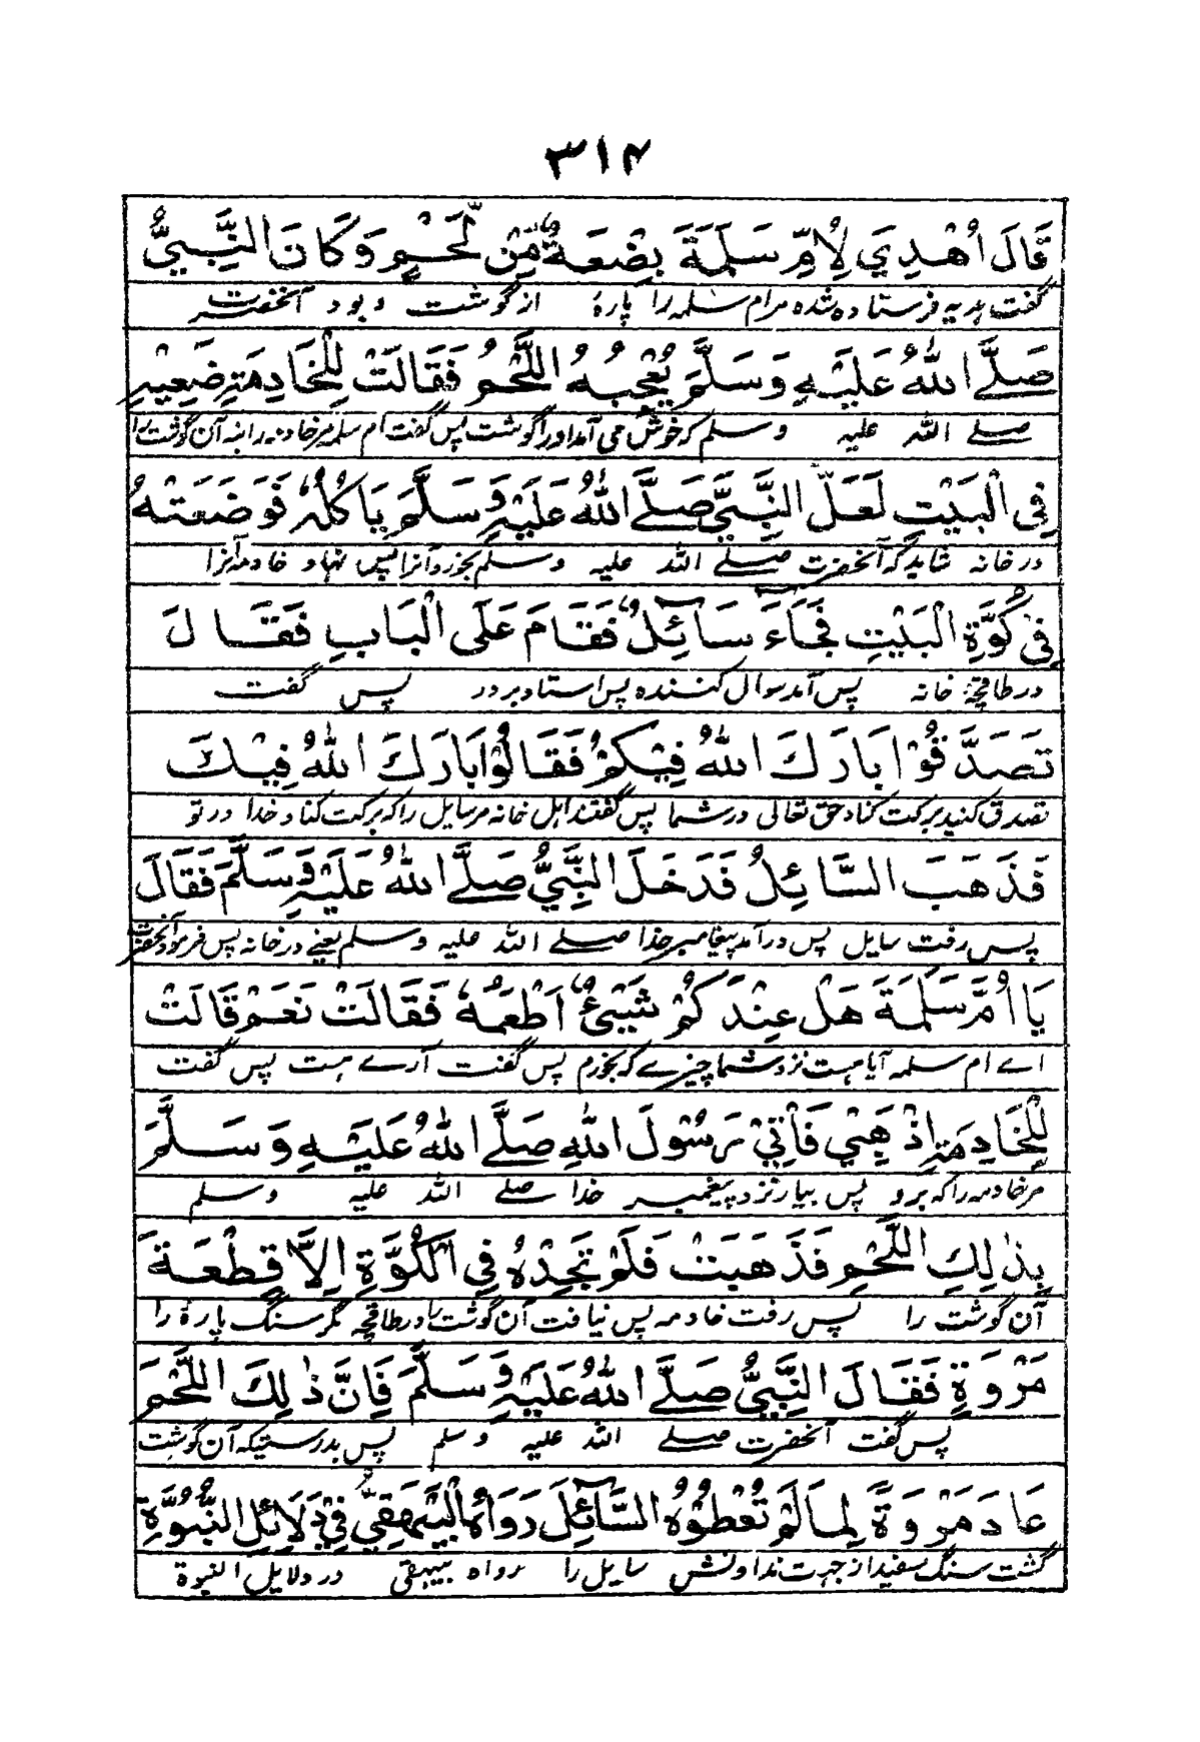 ۳۱۴
قَالَ اُهْدِيَ لِاُمِّ سَلَمَةَ بِضْعَةٌ مِّنْ لَّحْمٍ وَكَانَ النَّبِيُّ
گفت ہدیہ فرستاده شده مرام سلمہ را پارۂ از گوشت و بود آنحضرت
صَلَّے اللهُ عَلَيْهِ وَسَلَّمَ يُعْجِبُهُ اللَّحْمُ فَقَالَتْ لِلْخَادِمَةِ ضَعِيْهِ
صلے اللہ علیہ وسلم کہ خوش می آمد اورا گوشت پس گفت ام سلمہ مر خادمہ را بنہ آن گوشت را
فِي الْبَيْتِ لَعَلَّ النَّبِيَّ صَلَّے اللهُ عَلَيْهِ وَسَلَّمَ يَاكُلُهُ فَوَضَعَتْهُ
در خانہ شاید کہ آنحضرت صلے اللہ علیہ وسلم بخورد آنرا پس نہاد خادمہ آنرا
فِيْ كُوَّةِ الْبَيْتِ فَجَاءَ سَآئِلٌ فَقَامَ عَلَى الْبَابِ فَقَالَ
در طاقچۂ خانہ پس آمد سوال کننده پس استاد بر در پس گفت
تَصَدَّقُوْا بَارَكَ اللهُ فِيْكُمْ فَقَالُوْا بَارَكَ اللهُ فِيْكَ
تصدق کنید برکت کناد حق تعالی در شما پس گفتند اہل خانہ مر سایل را کہ برکت کناد خدا در تو
فَذَهَبَ السَّائِلُ فَدَخَلَ النَّبِيُّ صَلَّے اللهُ عَلَيْهِ وَسَلَّمَ فَقَالَ
پس رفت سایل پس در آمد پیغامبر خدا صلے اللہ علیہ وسلم یعنے در خانہ پس فرمود آنحضرت
يَا اُمَّ سَلَمَةَ هَلْ عِنْدَكُمْ شَيْئٌ اَطْعَمُهُ فَقَالَتْ نَعَمْ قَالَتْ
اے ام سلمہ آیا ہست نزد شما چیزے کہ بخورم پس گفت آرے ہست پس گفت
لِلْخَادِمَةِ اِذْهَبِيْ فَأْتِيْ رَسُوْلَ اللهِ صَلَّے اللهُ عَلَيْهِ وَسَلَّمَ
مر خادمہ را کہ برو پس بیار نزد پیغمبر خدا صلے اللہ علیہ وسلم
بِذٰلِكِ اللَّحْمِ فَذَهَبَتْ فَلَمْ تَجِدْهُ فِي الْكُوَّةِ اِلَّا قِطْعَةَ
آن گوشت را پس رفت خادمہ پس نیافت آن گوشت را در طاقچہ مگر سنگ پارۂ را
مَرْوَةٍ فَقَالَ النَّبِيُّ صَلَّے اللهُ عَلَيْهِ وَسَلَّمَ فَاِنَّ ذٰلِكَ اللَّحْمَ
پس گفت آنحضرت صلے اللہ علیہ وسلم پس بدرستیکہ آن گوشت
عَادَ مَرْوَةً لِمَا لَمْ تُعْطُوْهُ السَّآئِلَ رَوَاهُ الْبَيْهَقِيُّ فِيْ دَلَائِلِ النُّبُوَّةِ
گشت سنگ سفید از جہت ندادنش سایل را رواه بیہقی در دلایل النبوة